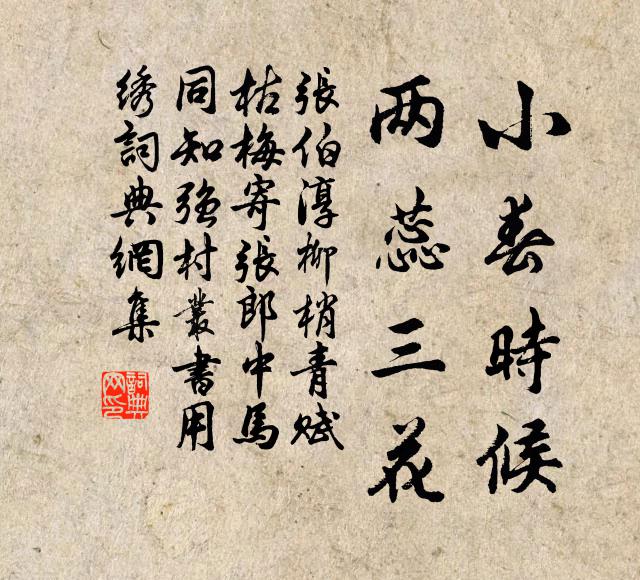 小春時候
两蕊三花
張伯淳柳梢青赋
枯梅寄張郎中馬
同知強村叢書用
绣詞典網集
詞典
网印